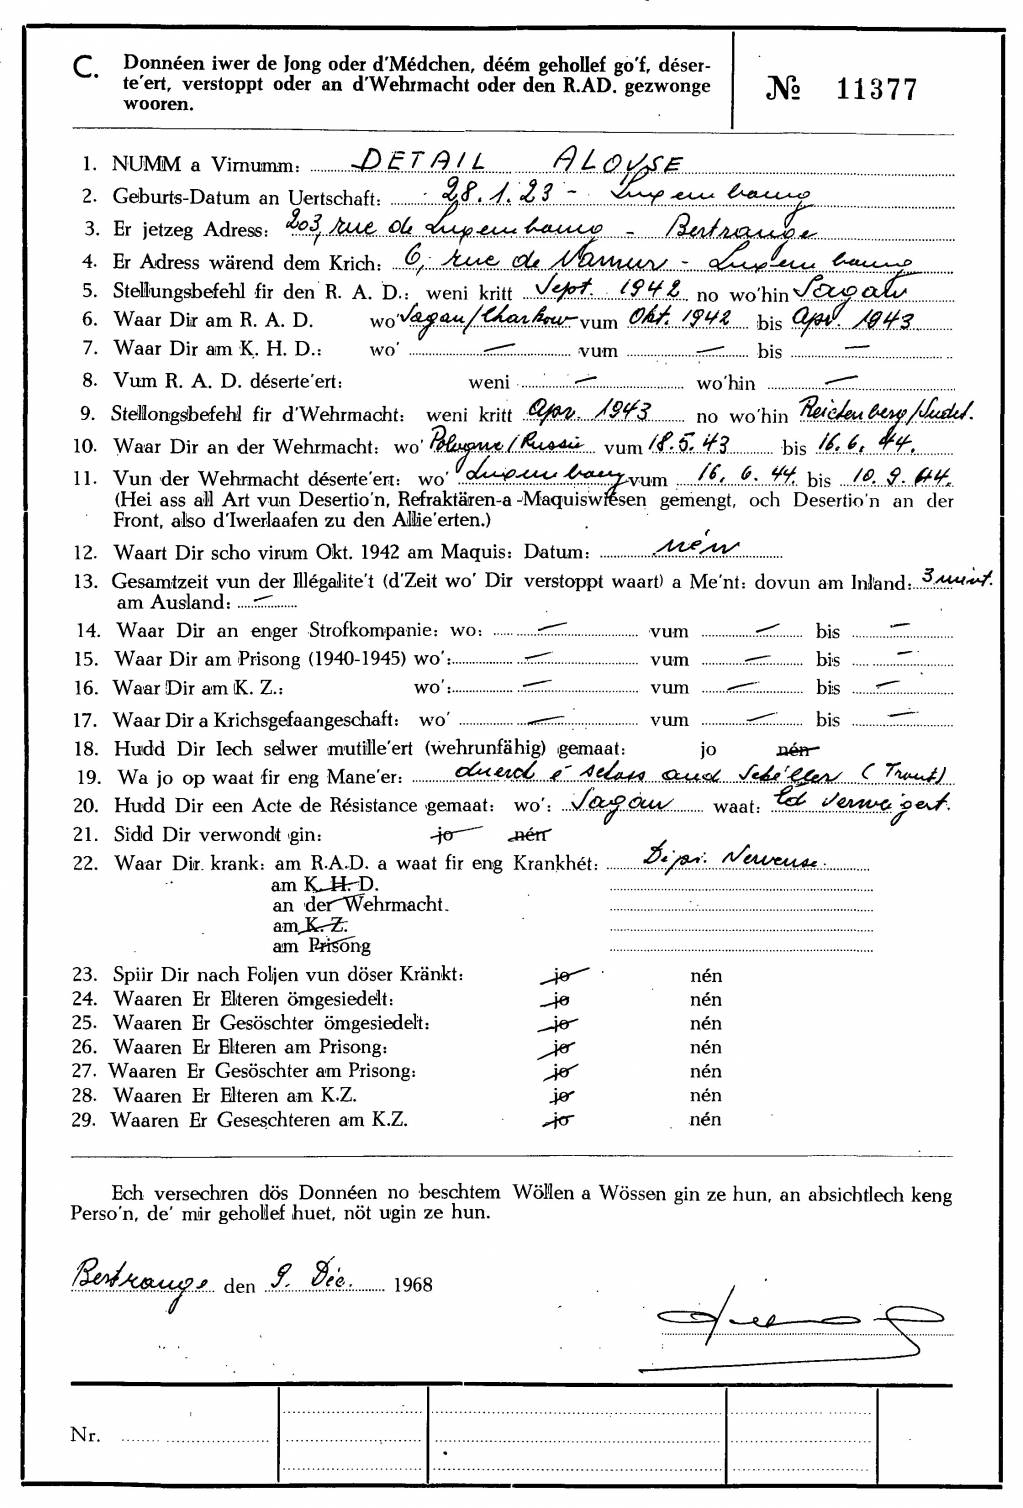 C. Donnéen iwer de Jong oder d'Médchen, déém gehollef gö'f, déser-
te'ert, verstoppt oder an d'Wehrmacht oder den R.AD. gezwonge
wooren.
№ 11377
1. NUMM a Virnumm: DETAIL ALOYSE
2. Geburts-Datum an Uertschaft: 28.1.23 - Luxembourg
3. Er jetzeg Adress: 203, rue de Luxembourg - Bertrange
4. Er Adress wärend dem Krich: 6, rue de Namur - Luxembourg
5. Stellungsbefehl fir den R. A. D.: weni kritt Sept. 1942 no wo'hin Sagan
6. Waar Dir am R. A. D. wo' Sagan/Charkow vum Okt. 1942 bis Apr. 1943
7. Waar Dir am K. H. D.: wo' — vum — bis —
8. Vum R. A. D. déserte'ert: weni — wo'hin —
9. Stellongsbefehl fir d'Wehrmacht: weni kritt Apr. 1943 no wo'hin Reichenberg/Sudet.
10. Waar Dir an der Wehrmacht: wo' Pologne/Russie vum 18.5.43 bis 16.6.44.
11. Vun der Wehrmacht déserte'ert: wo' Luxembourg vum 16. 6. 44. bis 10. 9. 44.
(Hei ass all Art vun Desertio'n, Refraktären-a-Maquiswiesen gemengt, och Desertio'n an der
Front, also d'Iwerlaafen zu den Allie'erten.)
12. Waart Dir scho virum Okt. 1942 am Maquis: Datum: nén
13. Gesamtzeit vun der Illégalite't (d'Zeit wo' Dir verstoppt waart) a Me'nt: dovun am Inland: 3
am Ausland: —
14. Waar Dir an enger Strofkompanie: wo: — vum — bis —
15. Waar Dir am Prisong (1940-1945) wo': — vum — bis —
16. Waar Dir am K. Z.: wo': — vum — bis —
17. Waar Dir a Krichsgefaangeschaft: wo' — vum — bis —
18. Hudd Dir Iech selwer mutille'ert (wehrunfähig) gemaat: jo nén
19. Wa jo op waat fir eng Mane'er: duerch é
20. Hudd Dir een Acte de Résistance gemaat: wo': Sagan waat: Ed verweigert.
21. Sidd Dir verwondt gin: jo nén
22. Waar Dir krank: am R.A.D. a waat fir eng Krankhét: Nerveuse.
am K. H. D.
an der Wehrmacht.
am K. Z.
am Prisong
23. Spiir Dir nach Foljen vun döser Kränkt: jo nén
24. Waaren Er Elteren ömgesiedelt: jo nén
25. Waaren Er Gesöschter ömgesiedelt: jo nén
26. Waaren Er Elteren am Prisong: jo nén
27. Waaren Er Gesöschter am Prisong: jo nén
28. Waaren Er Elteren am K.Z. jo nén
29. Waaren Er Geseschteren am K.Z. jo nén
Ech versechren dös Donnéen no beschtem Wöllen a Wössen gin ze hun, an absichtlech keng
Perso'n, de' mir gehollef huet, nöt ugin ze hun.
Bertrange den 9. Déc. 1968
Nr.